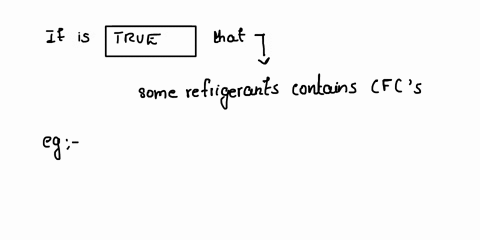 It is TRUE that
some refrigerants contains CFC's
eg:-